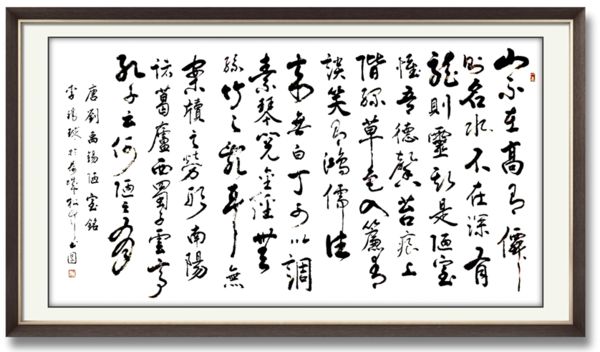 山不在高有僊
則名水不在深有
龍則靈斯是陋室
惟吾德馨苔痕上
階綠草色入簾青
談笑有鴻儒往
來無白丁可以調
素琴閱金經無
絲竹之亂耳無
案牘之勞形南陽
諸葛廬西蜀子雲亭
孔子云何陋之有
唐劉禹錫陋室銘